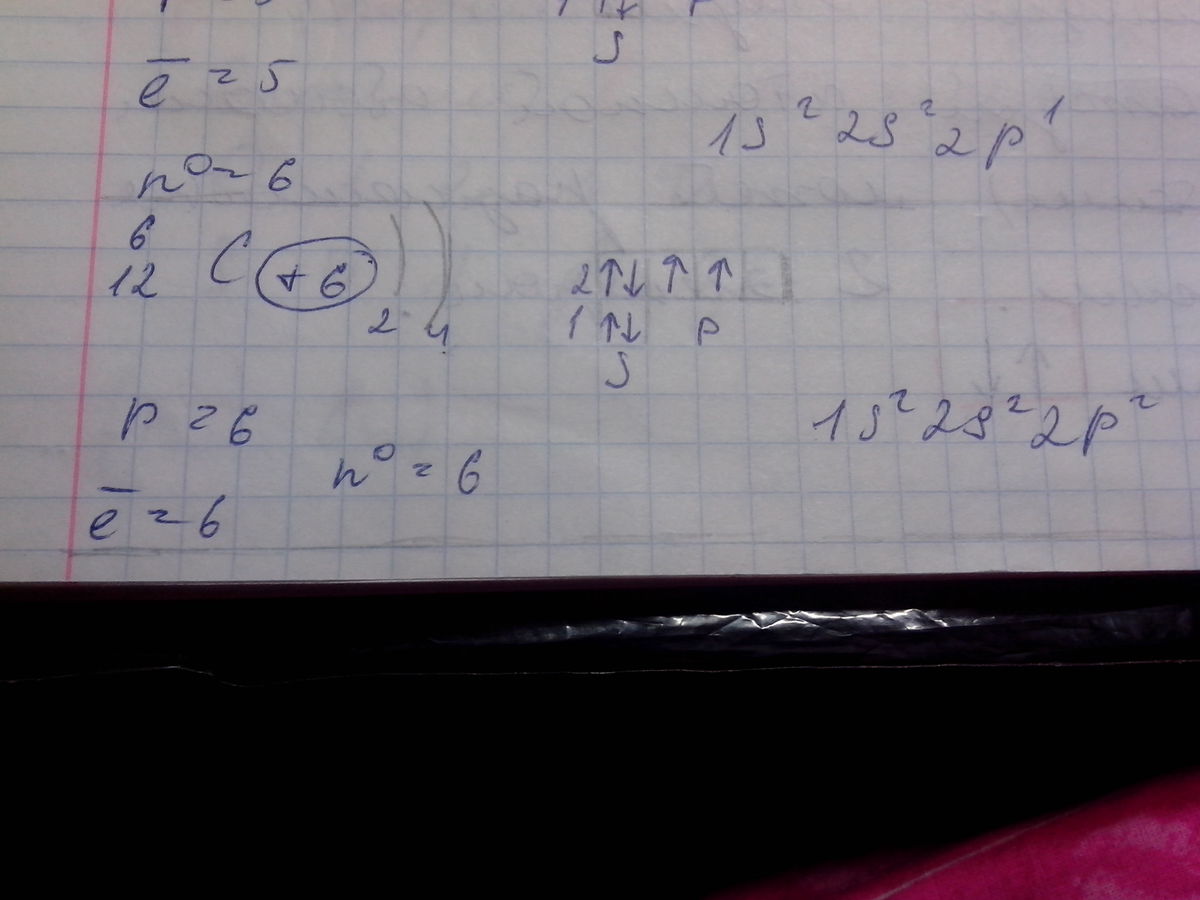 e̅ = 5
1s² 2s² 2p¹
n⁰ = 6
6
12 C +6 2 4
2 ↑↓ ↑ ↑
1 ↑↓ p
s
p = 6
n⁰ = 6
1s² 2s² 2p²
e̅ = 6